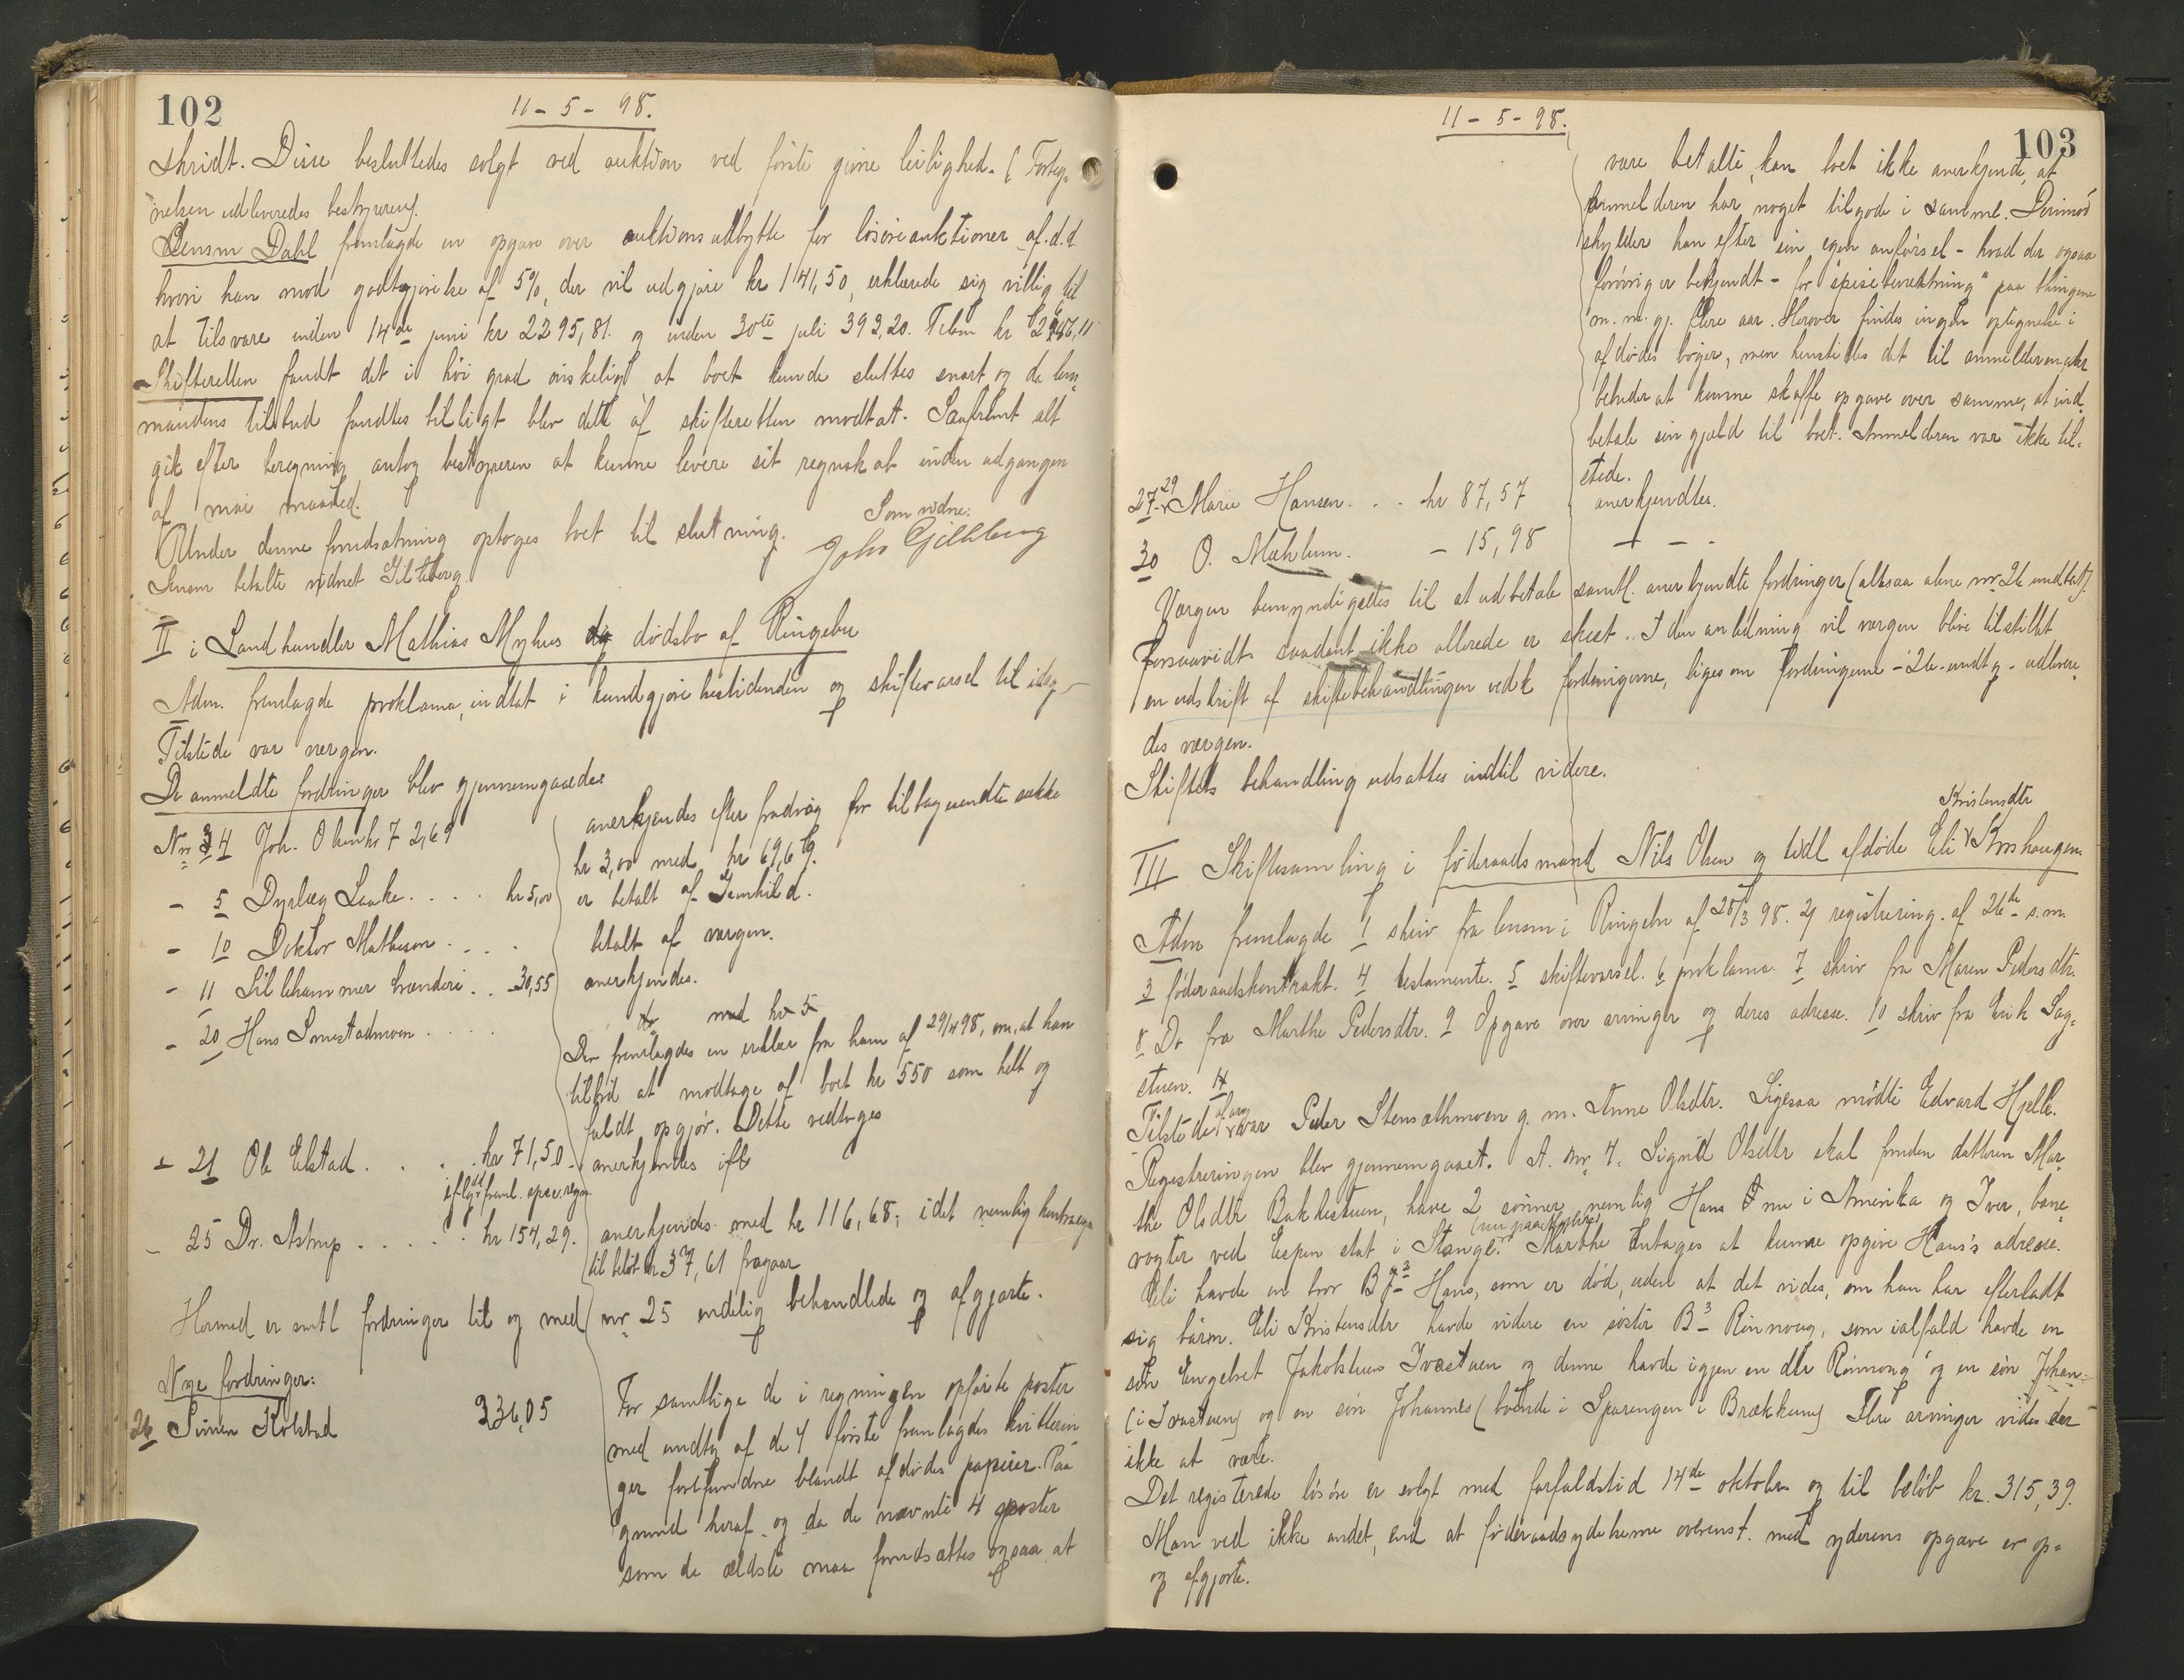 102
11 - 5 - 98.
skridt. Disse besluttedes solgt ved auktion ved første givne leilighed. (Forteg-
nelsen udleveredes bestyreren).
Lensm Dahl fremlagde en opgave over auktionsudbytte for løsøreauktioner af d.d.
hvori han mod godtgjørelse af 5%, der vil udgjøre kr 141,50, erklærede sig villig til
at tilsvare inden 14de juni kr 2295,81. og inden 30te juli 393,20. Tilsm kr
Skifteretten fandt det i høi grad ønskeligt at boet kunde sluttes snart og da lens-
mandens tilbud fandtes billigt blev dette af skifteretten modtat. Saafremt alt
gik efter beregning antog bestyreren at kunne levere sit regnskab inden udgangen
af mai maaned.
Under denne forudsætning optoges boet til slutning.
Som vidne:
John Gilleberg
Lensm betalte vidnet Gilleberg
II i Landhandler Mathias Myhres dødsbo af Ringebu
Adm. fremlagde proklama, indtat i kundgjørelsestidenden og skiftevarsel til idag -
Tilstede var vergen.
De anmeldte fordringer blev gjennemgaaede:
Nr 4 Joh. Olsen kr 72,69
anerkjendes efter fradrag for tilbagesendte sække
kr 3,00 med kr 69,69.
- 5 Dyrlæg Laake . . . . kr 5,00
er betalt af Gunhild.
- 10 Doktor Mathesen . . .
betalt af vergen.
- 11 Lillehammer brænderi . . - 30,55
anerkjendes.
- 20 Hans Lomstadmoen . . . .
do med kr 5
Der fremlagdes en erklær fra ham af 29/4 98, om, at han
tilbød at modtage af boet kr 550 som helt og
fuldt opgjør. Dette vedtoges
- 21 Ole Elstad . . . . kr 71,50 -
anerkjendes
ifølge freml. spec. regn.
- 25 Dr. Astrup . . . . . kr 154,29.
anerkjendes med kr 116,68; idet nemlig kontraregn
til beløb kr 37,61 fragaar
Hermed er samtl fordringer til og med nr 25 endelig behandlede og afgjorte.
Nye fordringer:
26 Simen Kolstad 336,05
For samtlige de i regningen opførte poster
med undtag af de 4 første fremlagdes kvitterin
ger forefundne blandt afdødes papirer. Paa
grund heraf og da de nævnte 4 poster
som de ældste maa forudsættes ogsaa at
103
11 - 5 - 98.
være betalte, kan boet ikke anerkjende, at
anmelderen har noget tilgode i samme. Derimod
skylder han efter sin egen anførsel - hvad der ogsaa
forøvrig er bekjendt - for "spisebevertning" paa thingene
m. m. gj. flere aar. Herover findes ingen optegnelse i
afdødes bøger, men henstilles det til anmelderen, der
beheder at kunne skaffe opgave over samme, at ind-
betale sin gjæld til boet. Anmelderen var ikke til-
stede.
27-29 Marie Hansen . . - kr 87,57
anerkjendtes.
30 O. Mæhlum. - 15,98
- " -
Vergen bemyndigedes til at udbetale samtl. anerkjendte fordringer (altsaa alene nr 26 undtat).
forsaavidt saadant ikke allerede er skeet. I den anledning vil vergen blive tilstillet
en udskrift af skiftebehandlingen vedk fordringerne, ligesom fordringerne - 26 undtg - udlevere-
des vergen.
Skiftets behandling udsattes indtil videre.
III Skiftesamling i føderaadsmand Nils Olsen og tidl afdøde Eli Kristensdtr Korshaugen
Adm fremlagde 1 skriv fra lensm i Ringebu af 25/3 98. 2 registrering af 26de s.m.
3 føderaadskontrakt. 4 testamente. 5 skiftevarsel. 6 proklama. 7 skriv fra Maren Pedersdtr.
8 Do fra Marthe Pedersdtr. 9 Opgave over arvinger og deres adresse. 10 skriv fra Erik Sag-
stuen.
Tilstede af arv var Peder Stensethmoen g. m. Anne Olsdtr. Ligesaa mødte Edvard Hjelle.
Registreringen blev gjennemgaaet. A. nr 4. Sigrid Olsdtr skal foruden datteren Mar-
the Olsdtr Bakkestuen, have 2 sønner nemlig Hans O nu i Amerika og Iver, bane-
vogter ved Espen stat i Stange. Marthe antages at kunne opgive Hans's adresse.
Eli havde en bror B 2 Hans, som er død, uden at det vides, om han har efterladt
sig børn. Eli Kristensdtr havde videre en søster B 3 Rønnoug, som ialfald havde en
søn Engebret Jakobstuen Ivastuen og denne havde igjen en dtr Rønnoug og en søn Johan-
(i Ivastuen) og en søn Johannes (boende i Sparengen i Brækkum) Flere arvinger vides der
ikke at være.
Det registerede løsøre er solgt med forfaldstid 14de oktober og til beløb kr. 315,39.
Man ved ikke andet, end at føderaadsydelserne overenst. med yderens opgave er op-
og afgjorte.